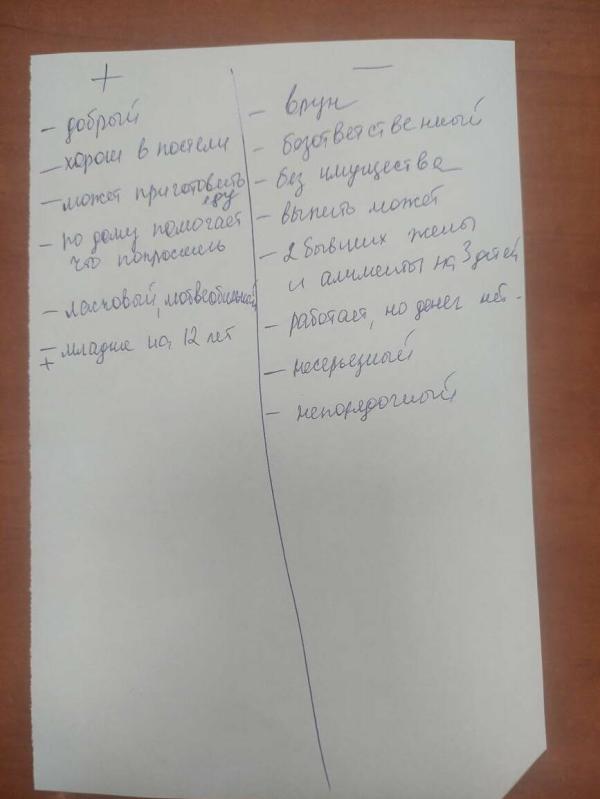 +
- добрый
- хорош в постели
- может приготовить
еду
- по дому помогает
что попросишь
- ласковый, любвеобильный
- младше на 12 лет
+
—
- врун
- безответственный
- без имущества
- выпить может
- 2 бывших жены
и алименты на 3 детей
- работает, но денег нет -
- несерьезный
- непорядочный